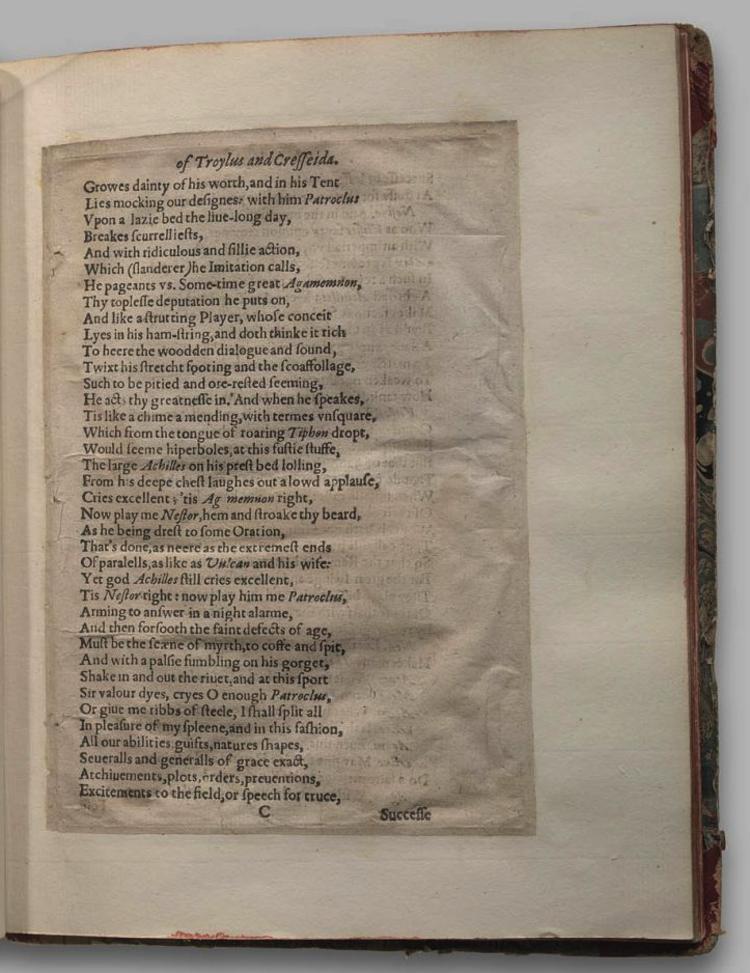 of Troylus and Cresseida.
Growes dainty of his worth,and in his Tent
Lies mocking our designes: with him Patroclus
Vpon a lazie bed the liue-long day,
Breakes scurrell iests,
And with ridiculous and sillie action,
Which (slanderer )he Imitation calls,
He pageants vs. Some-time great Agamemnon,
Thy toplesse deputation he puts on,
And like a strutting Player, whose conceit
Lyes in his ham-string,and doth thinke it rich
To heere the woodden dialogue and sound,
Twixt his stretcht footing and the scoaffollage,
Such to be pitied and ore-rested seeming,
He acts thy greatnesse in.'And when he speakes,
Tis like a chime a mending,with termes vnsquare,
Which from the tongue of roaring Tiphon dropt,
Would seeme hiperboles,at this fustie stuffe,
The large Achilles on his prest bed lolling,
From his deepe chest laughes out a lowd applause,
Cries excellent ; 'tis Ag memnon right,
Now play me Nestor,hem and stroake thy beard,
As he being drest to some Oration,
That's done,as neere as the extremest ends
Of paralells,as like as Vulcan and his wife:
Yet god Achilles still cries excellent,
Tis Nestor right : now play him me Patroclus,
Arming to answer in a night alarme,
And then forsooth the faint defects of age,
Must be the scæne of myrth,to coffe and spit,
And with a palsie fumbling on his gorget,
Shake in and out the riuet,and at this sport
Sir valour dyes, cryes O enough Patroclus,
Or giue me ribbs of steele, I shall split all
In pleasure of my spleene,and in this fashion,
All our abilities guifts,natures shapes,
Seueralls and generalls of grace exact,
Atchiuements,plots,orders,preuentions,
Excitements to the field,or speech for truce,
C Successe